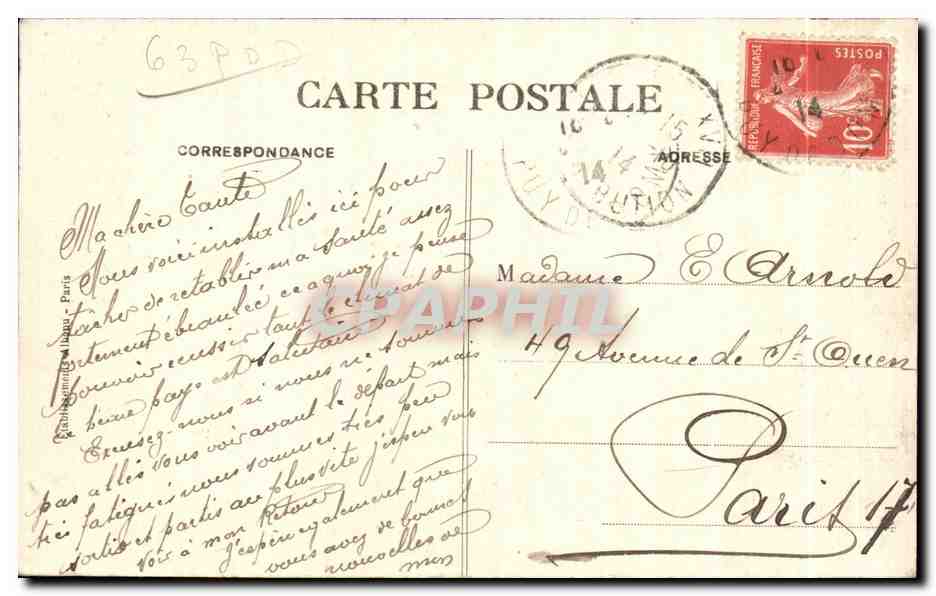 63 P D D
CARTE POSTALE
CORRESPONDANCE
ADRESSE
Ma chère Tante
Nous voici installés ici pour
tacher de retablir ma santé assez
fortement ébranlée ce à quoi je pense
pouvoir reussir tant le climat de
ce beau pays est salutaire
Excusez-nous si nous ne sommes
pas allés vous voir avant le départ mais
très fatigués nous sommes très peu
sortis et partis au plus vite j'espère vous
voir à mon Retour
J'espère également que
vous avez de bonnes
nouvelles de
mon
Etablissements - Paris
Madame E Arnold
49 Avenue de St Ouen
Paris 17
REPUBLIQUE FRANÇAISE
POSTES
10c
14
15
14
14
PUY DE
CPAPHIL